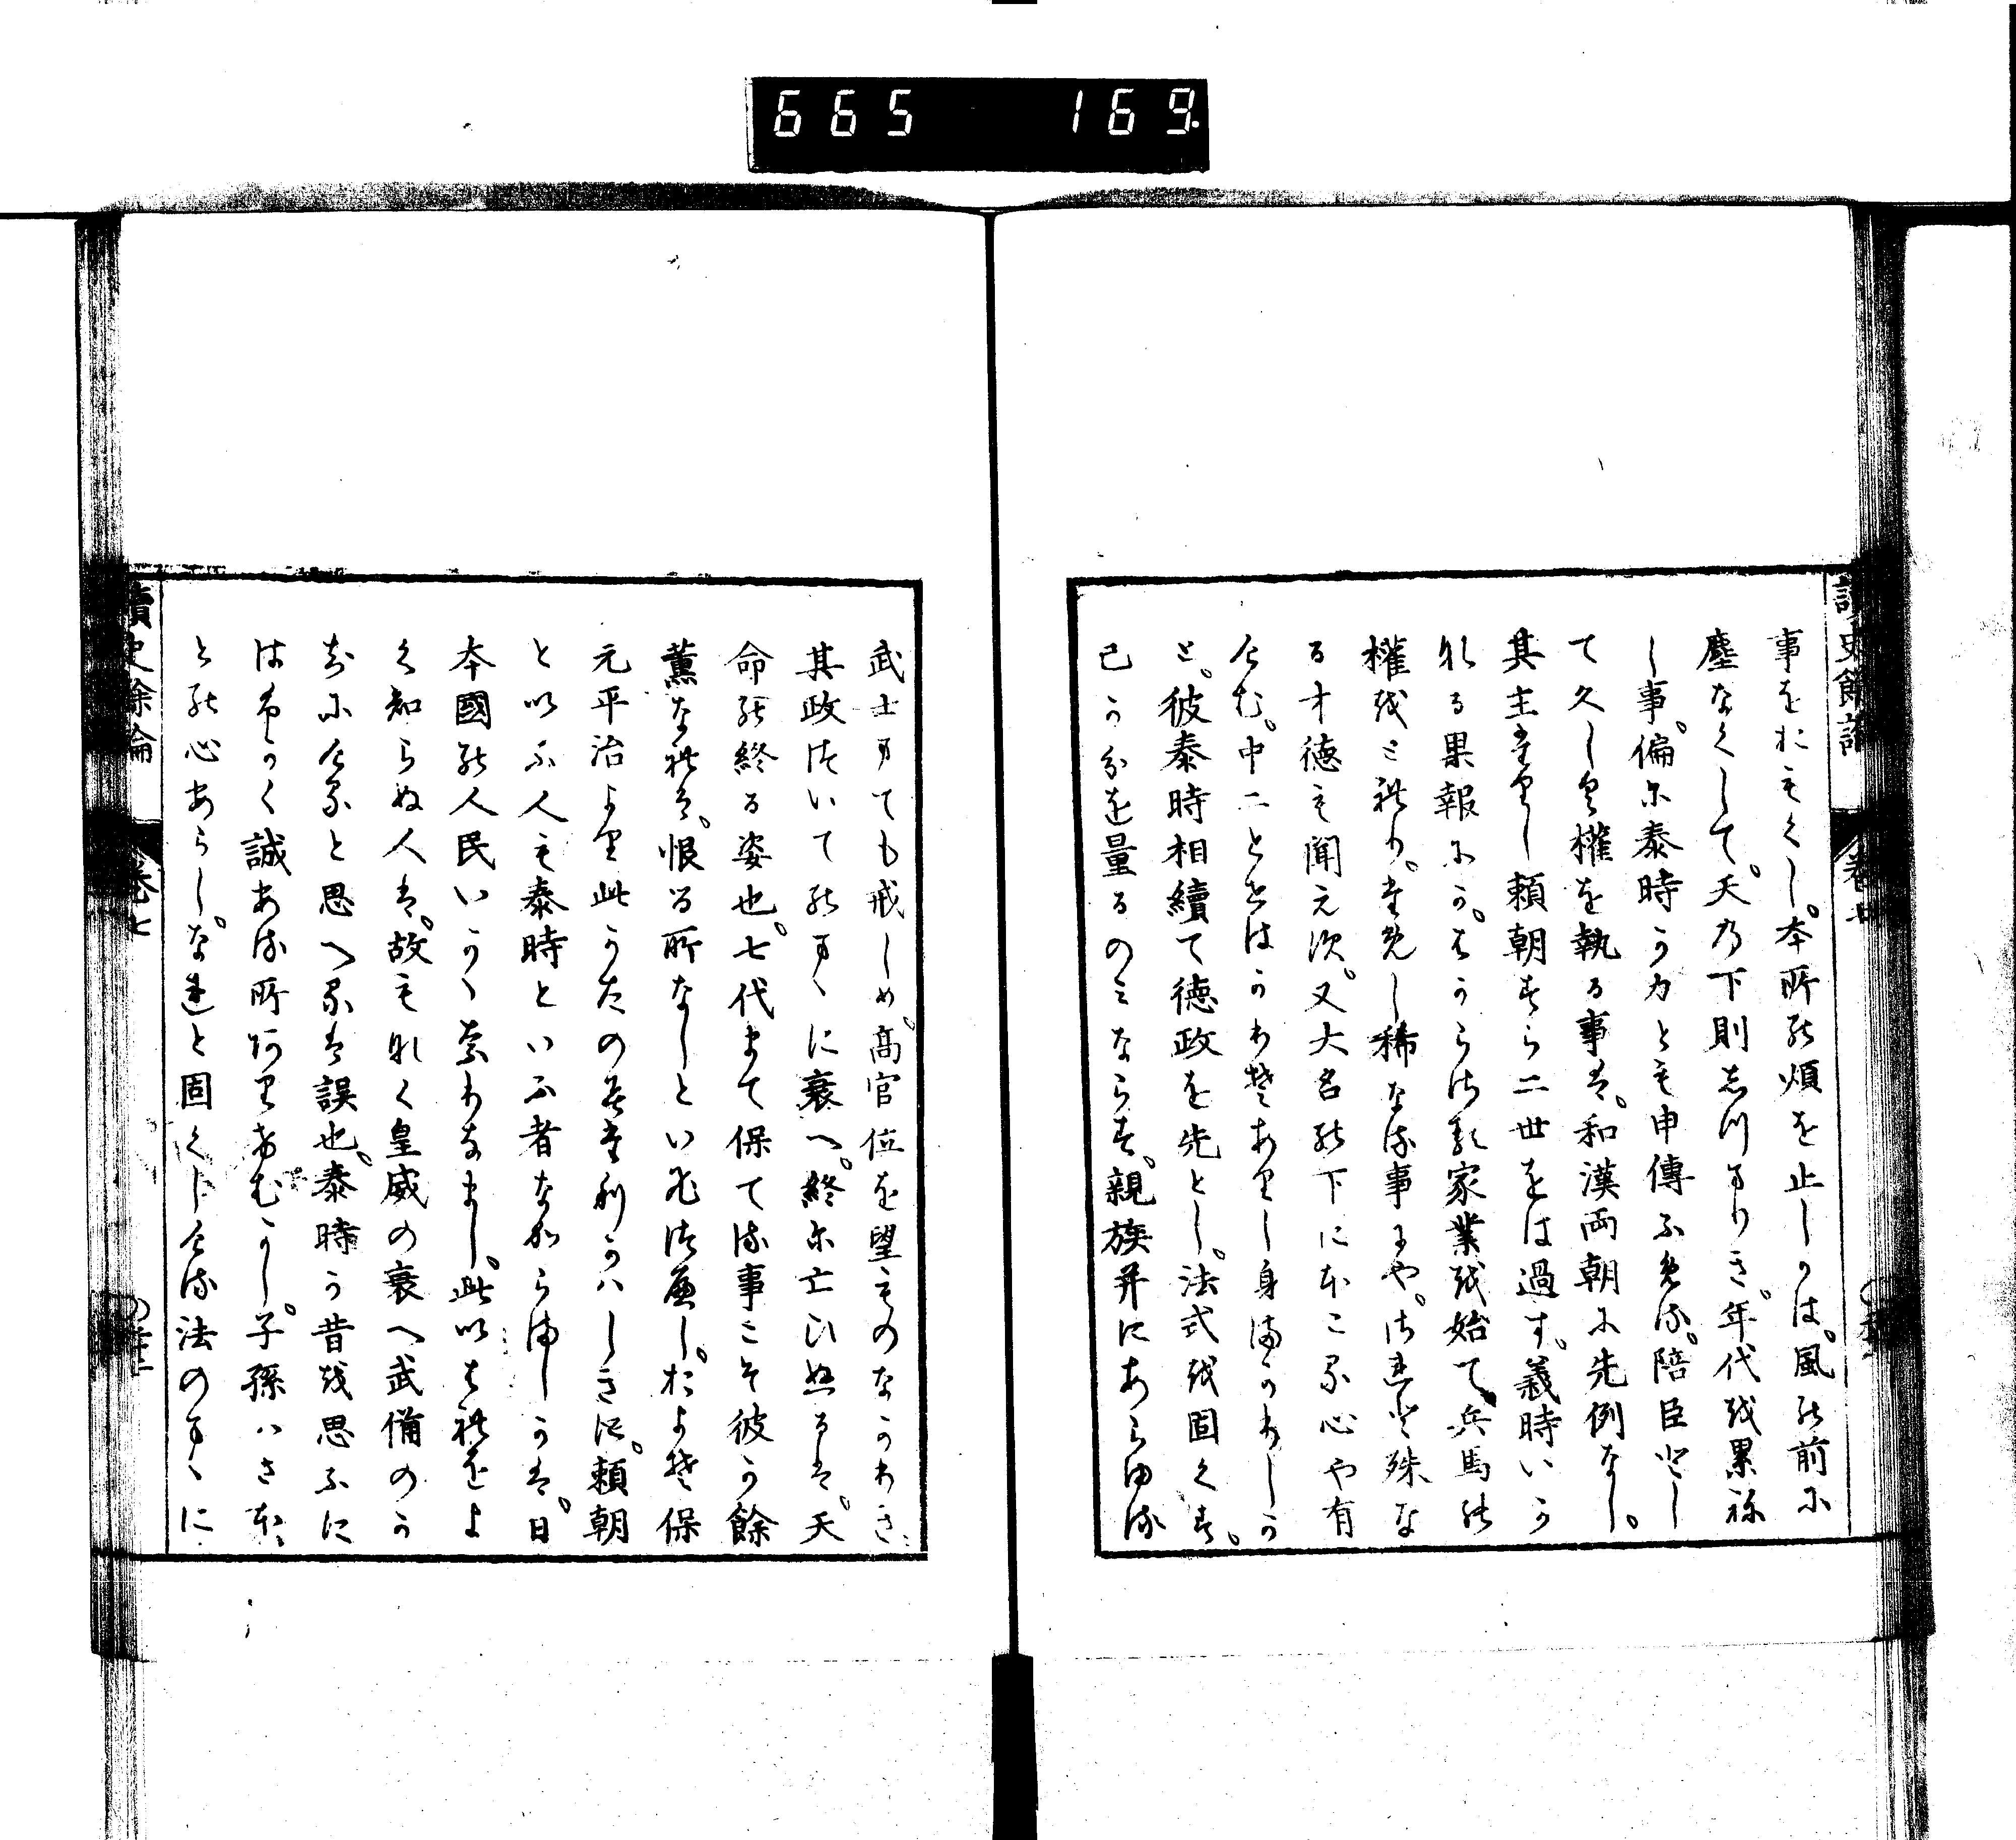 665 169
讀史餘論 卷七
事をおもくし。本所の煩を止しかは。風の前に
塵なくして。天の下則しつまりき。年代を累ね
し事。偏に泰時か力とも申傳ふめる。陪臣として
久しく權を執る事は。和漢両朝に先例なし。
其主たりし頼朝すら二世をは過す。義時いか
なる果報にか。はからさる家業を始て。兵馬の
權をとれり。ためし稀なる事にや。されと殊な
る才徳も聞えす。又大名の下にほこる心や有
けむ。中二とせはかりそありし身まかりしか
と。彼泰時相續て徳政を先とし。法式を固くす。
己か分を量るのみならす。親族并にあらゆる
武士まても戒しめ。高官位を望ものなかりき。
其政次いてのまゝに衰へ。終に亡ひぬるは。天
命の終る姿也。七代まて保てる事こそ彼か餘
薫なれは。恨る所なしといひつへし。およそ保
元平治より此かたのみたりかはしきに。頼朝
と以ふ人も泰時といふ者なからましかは。日
本國の人民いかゝなりなまし。此いはれをよ
く知らぬ人は。故もなく皇威の衰へ武備のか
ちにけると思へるは誤也。泰時か昔を思ふに
はよくかく誠ある所ありけむかし。子孫ハさほ
との心あらし。なれと固くしける法のまゝに
讀史餘論 卷七